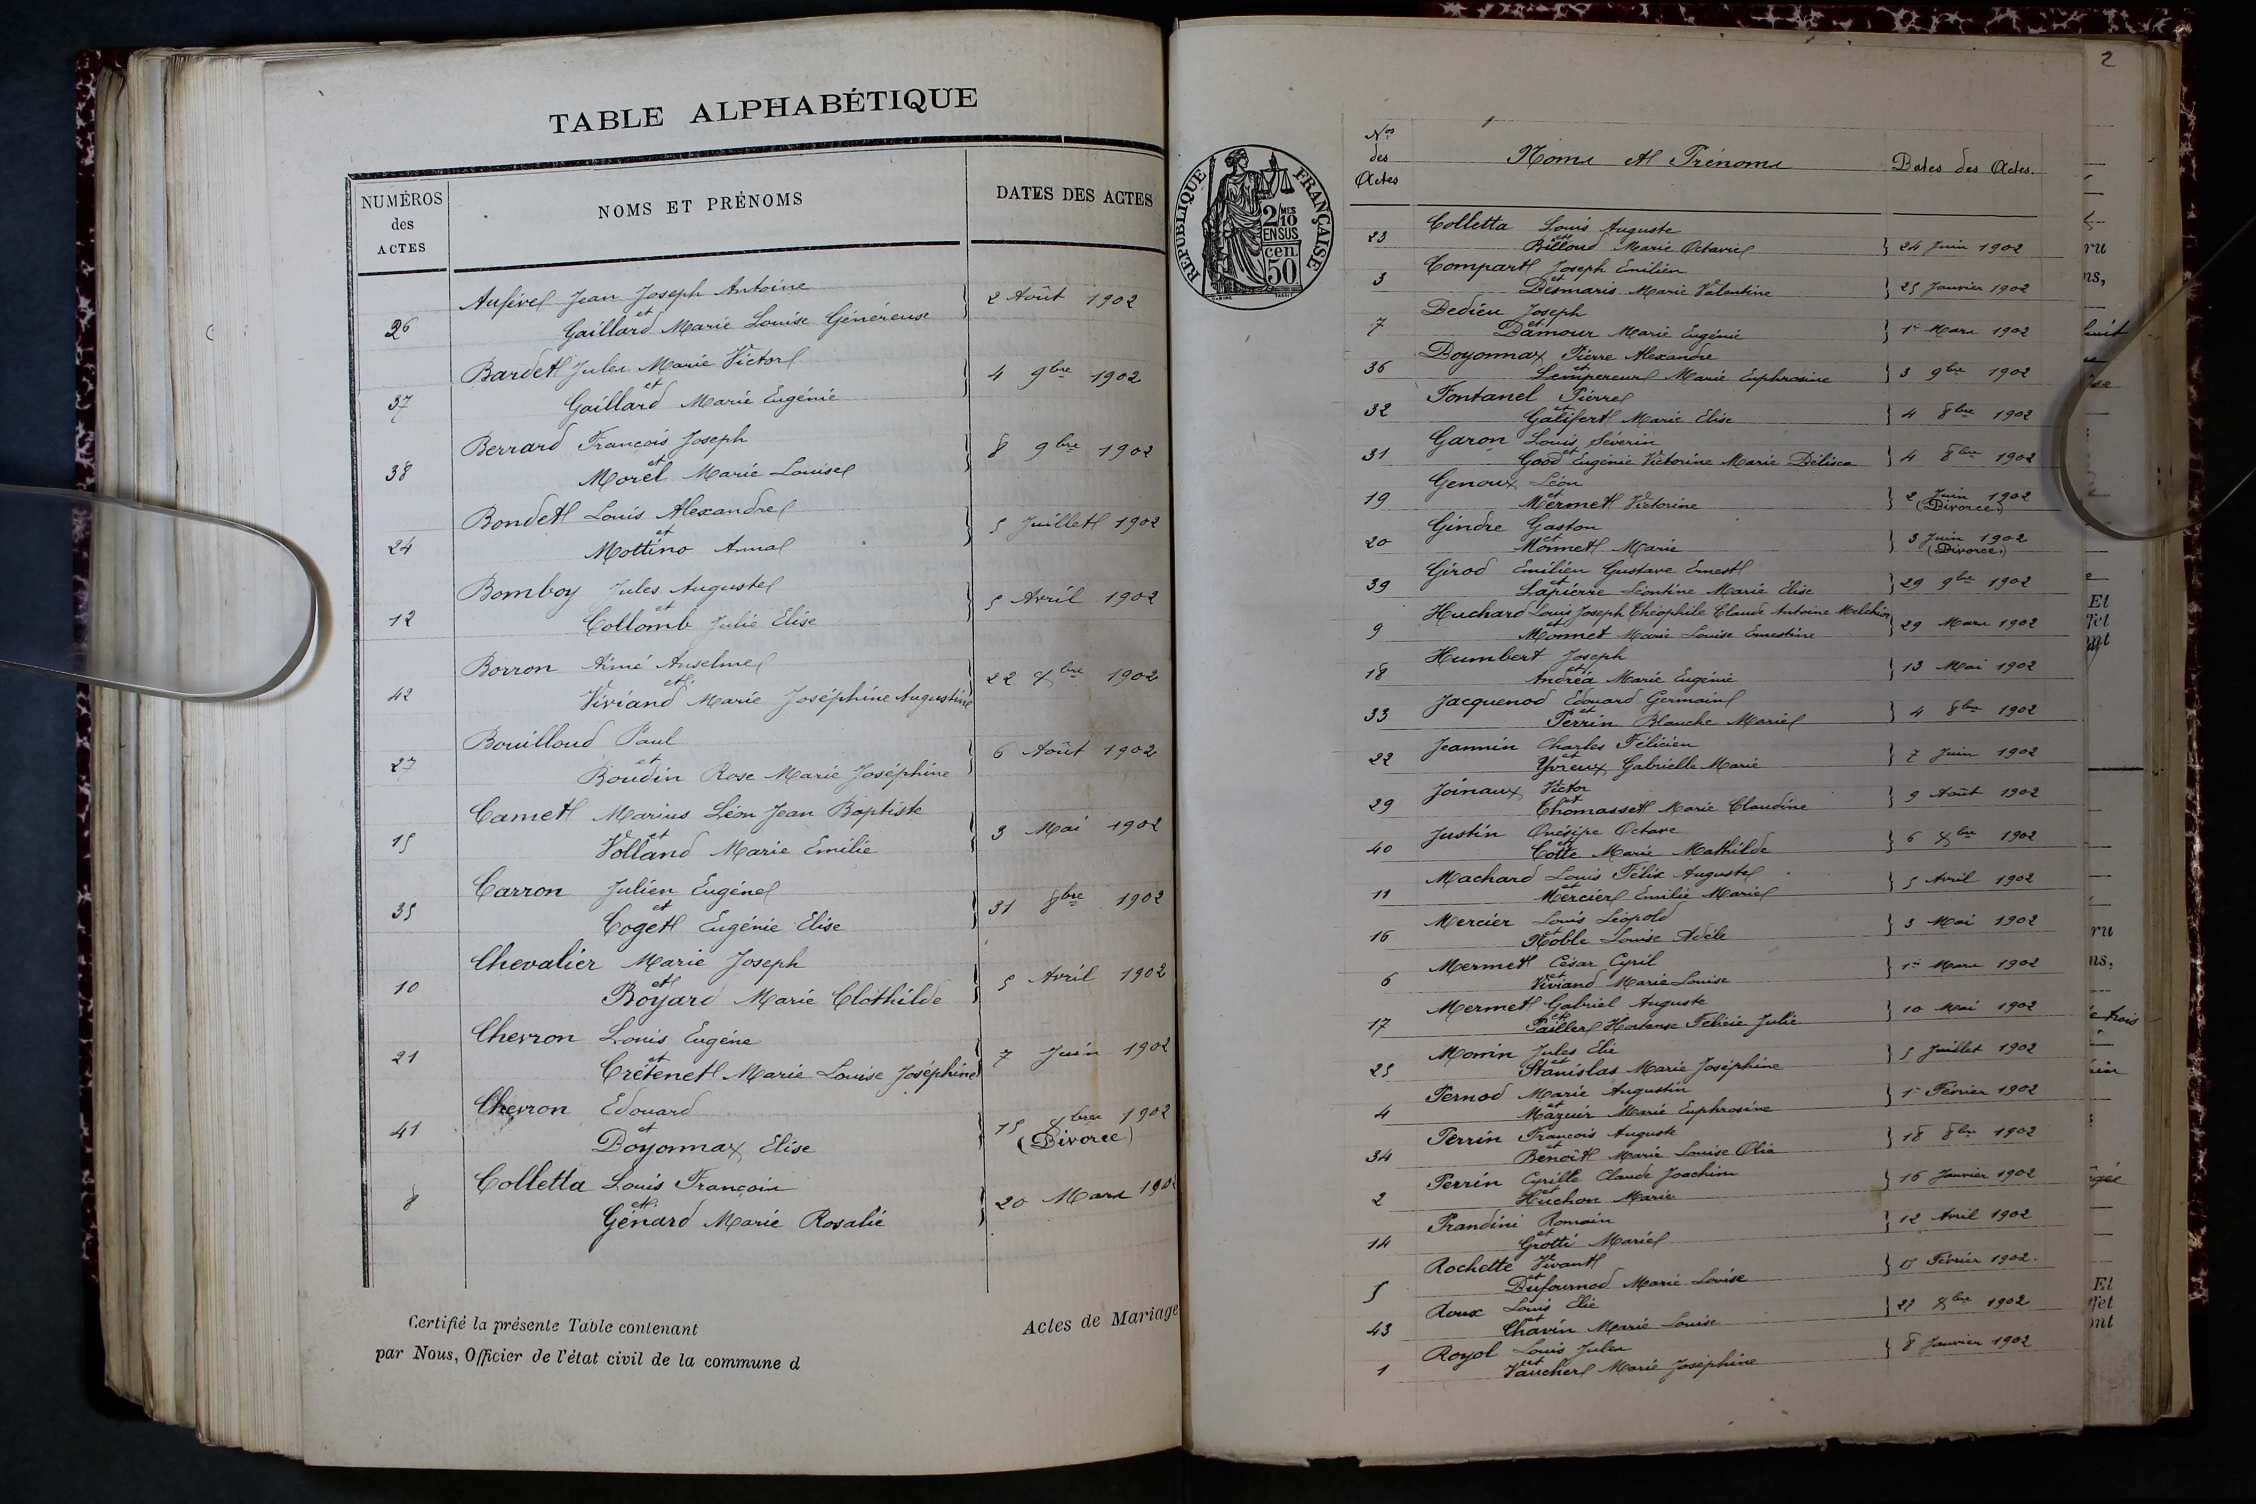 TABLE ALPHABÉTIQUE
NUMÉROS des ACTES
NOMS ET PRÉNOMS
DATES DES ACTES
26 Jean Joseph Antoine
et
Gaillard Marie Louise Généreuse
2 Août 1902
37 Bardet Jules Marie Victor
et
Gaillard Marie Eugénie
4 9bre 1902
38 Berrard François Joseph
et
Morel Marie Louise
8 9bre 1902
24 Bondet Louis Alexandre
et
Mottino Anna
5 Juillet 1902
12 Bomboy Jules Auguste
et
Collomb Julie Elise
5 Avril 1902
42 Borron Aimé Anselme
et
Viviand Marie Joséphine Augustine
22 Xbre 1902
27 Bouilloud Paul
et
Boudin Rose Marie Joséphine
6 Août 1902
15 Camet Marius Léon Jean Baptiste
et
Volland Marie Emilie
3 Mai 1902
35 Carron Julien Eugène
et
Coget Eugénie Elise
31 8bre 1902
10 Chevalier Marie Joseph
et
Boyard Marie Clothilde
5 Avril 1902
21 Chevron Louis Eugène
et
Crétenet Marie Louise Joséphine
7 Juin 1902
41 Chevron Edouard
et
Doyonnax Elise
15 Xbre 1902
(Divorce)
8 Colletta Louis François
et
Génard Marie Rosalie
20 Mars 190
Certifié la présente Table contenant
Actes de Mariage
par Nous, Officier de l'état civil de la commune d
2
RÉPUBLIQUE FRANÇAISE
2/10 MES
EN SUS
cen
50
Nos des Actes
Noms et Prénoms
Dates des Actes.
23 Colletta Louis Auguste
et
Billoud Marie Octavie
24 Juin 1902
3 Compart Joseph Emilien
et
Desmaris Marie Valentine
25 Janvier 1902
7 Dedieu Joseph
et
Damour Marie Eugénie
1er Mars 1902
36 Doyonnax Pierre Alexandre
et
Lempereur Marie Euphrosine
3 9bre 1902
32 Fontanel Pierre
et
Galifert Marie Elise
4 8bre 1902
31 Garon Louis Séverin
et
Good Eugénie Victorine Marie Délisca
4 8bre 1902
19 Genoux Léon
et
Mermet Victorine
2 Juin 1902
(Divorce)
20 Gindre Gaston
et
Monnet Marie
3 Juin 1902
(Divorce)
39 Girod Emilien Gustave Ernest
et
Lapierre Léontine Marie Elise
29 9bre 1902
9 Huchard Louis Joseph Théophile Claude Antoine Melchior
et
Monnet Marie Louise Ernestine
29 Mars 1902
18 Humbert Joseph
et
Andréa Marie Eugénie
13 Mai 1902
33 Jacquenod Edouard Germain
et
Perrin Blanche Marie
4 8bre 1902
22 Jeannin Charles Félicien
et
Yvreux Gabrielle Marie
7 Juin 1902
29 Joinaux Victor
et
Thomasset Marie Claudine
9 Août 1902
40 Justin Onésipe Octave
et
Cotte Marie Mathilde
6 Xbre 1902
11 Machard Louis Félix Auguste
et
Mercier Emilie Marie
5 Avril 1902
16 Mercier Louis Léopold
et
Noble Louise Adèle
3 Mai 1902
6 Mermet César Cyril
et
Viviand Marie Louise
1er Mars 1902
17 Mermet Gabriel Auguste
et
Pailler Hortense Félicie Julie
10 Mai 1902
25 Monin Jules Elie
et
Stanislas Marie Joséphine
5 Juillet 1902
4 Pernod Marie Augustin
et
Mazuir Marie Euphrosine
1er Février 1902
34 Perrin François Auguste
et
Benoît Marie Louise Olia
18 8bre 1902
2 Perrin Cyrille Claude Joachim
et
Huchon Marie
16 Janvier 1902
14 Prandini Romain
et
Grotti Marie
12 Avril 1902
5 Rochette Vivant
et
Dufournod Marie Louise
Février 1902.
43 Roux Louis Elie
et
Chavin Marie Louise
Xbre 1902
1 Royol Louis Jules
et
Vaucher Marie Joséphine
8 Janvier 1902